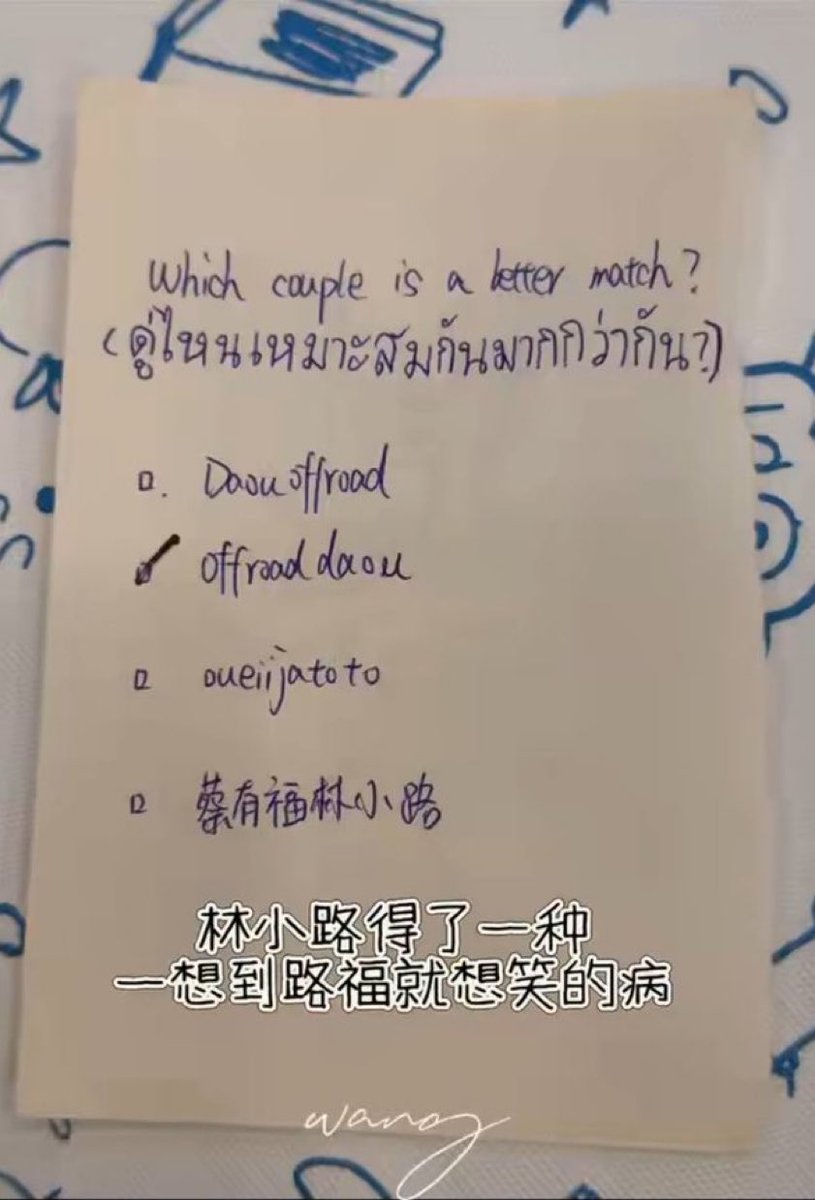 Which couple is a better match?
(คู่ไหนเหมาะสมกันมากกว่ากัน?)
Daouoffroad
offroaddaou
oueiijatoto
蔡有福林小路
林小路得了一种
一想到路福就想笑的病